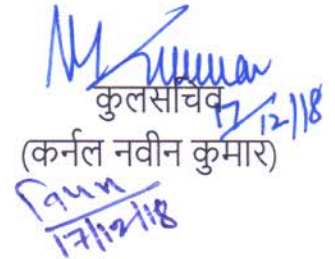 कुलसचिव
17/12/18
(कर्नल नवीन कुमार)
17/12/18